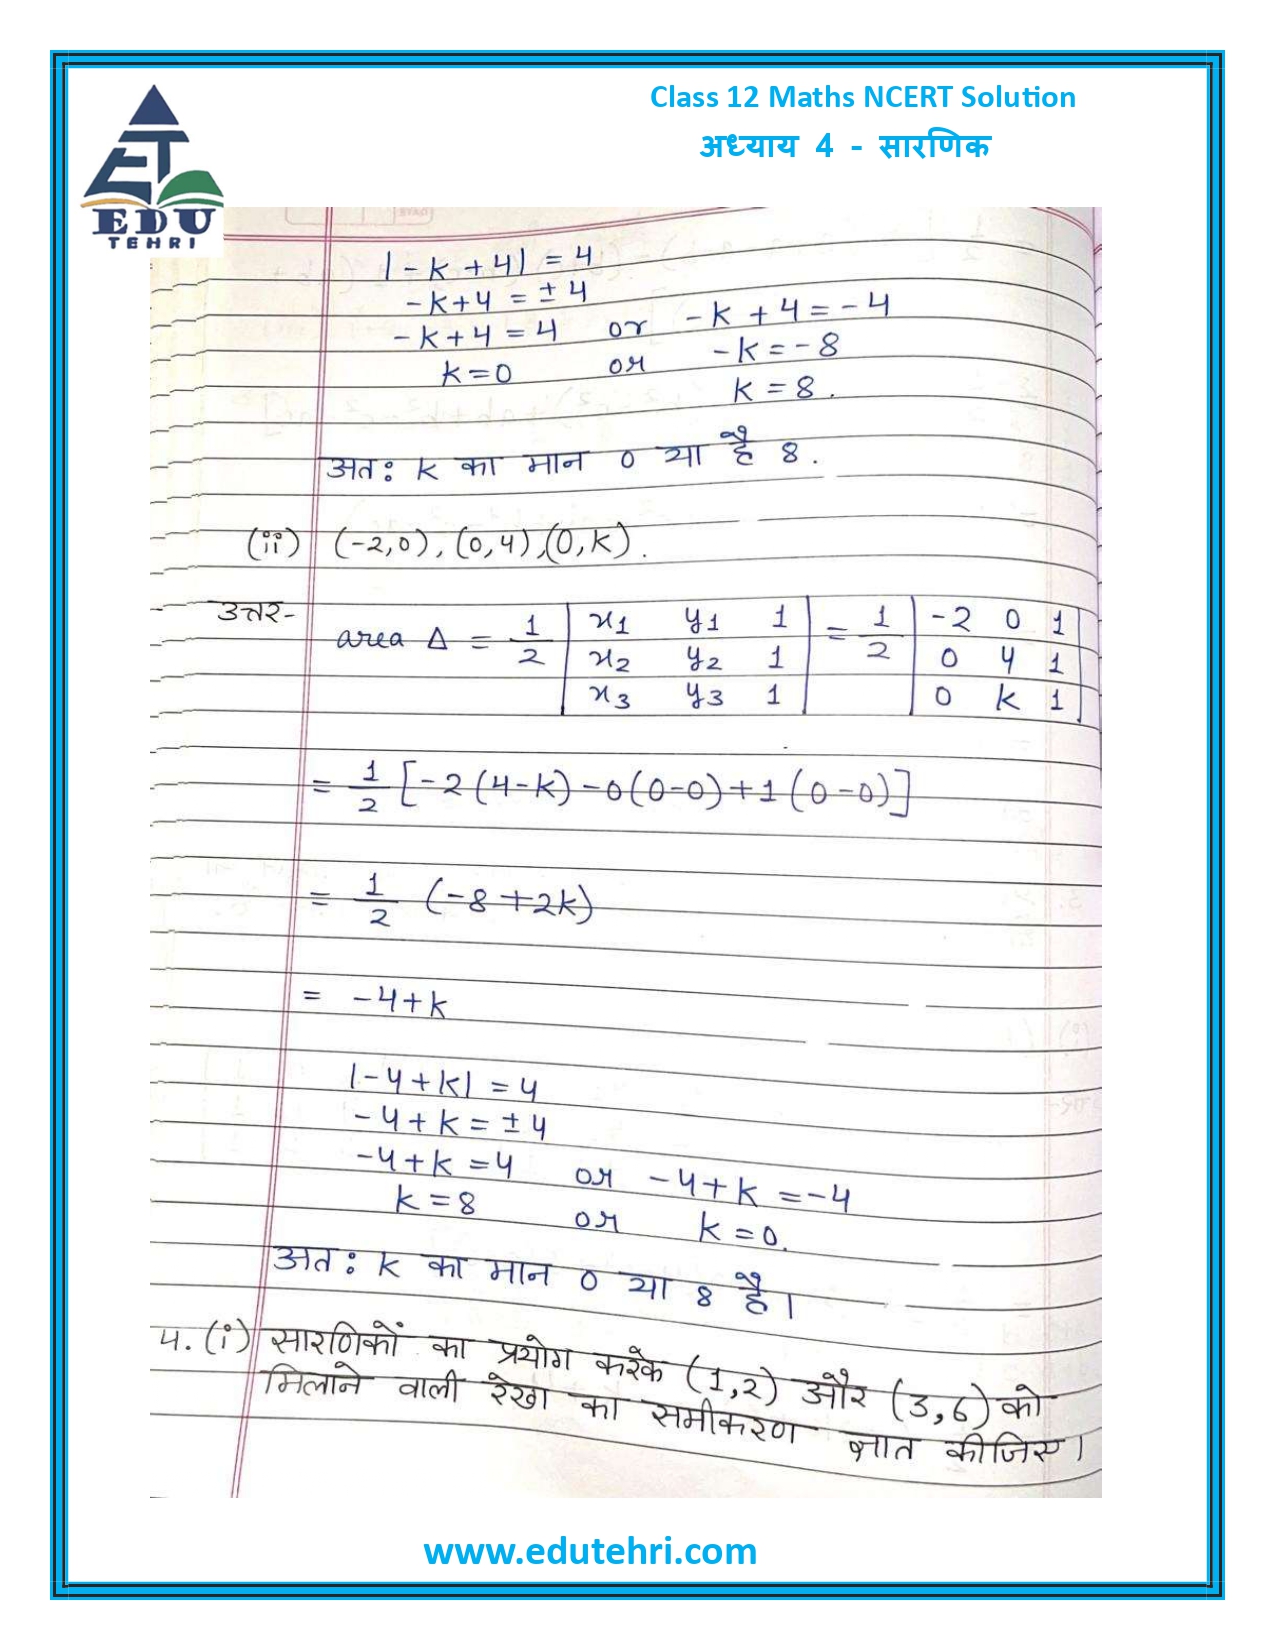 Class 12 Maths NCERT Solution
अध्याय 4 - सारणिक
EDU
TEHRI
|-k+4| = 4
-k+4 = ±4
-k+4 = 4 or -k+4 = -4
k=0 or -k=-8
k = 8.
अतः k का मान 0 या है 8.
(ii) (-2,0), (0,4), (0,k).
उत्तर-
area Δ = 1/2 | x1 y1 1 | = 1/2 | -2 0 1 |
| x2 y2 1 | | 0 4 1 |
| x3 y3 1 | | 0 k 1 |
= 1/2 [-2(4-k)-0(0-0)+1(0-0)]
= 1/2 (-8+2k)
= -4+k
|-4+k| = 4
-4+k = ±4
-4+k = 4 or -4+k = -4
k = 8 or k = 0.
अतः k का मान 0 या 8 है।
4. (i) सारणिकों का प्रयोग करके (1,2) और (3,6) को
मिलाने वाली रेखा का समीकरण ज्ञात कीजिए।
www.edutehri.com